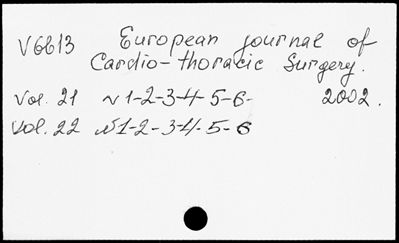 V6613 European journal of
Cardio-thoracic Surgery.
Vol. 21 N 1-2-3-4-5-6- 2002.
Vol. 22 N 1-2-3-4-5-6